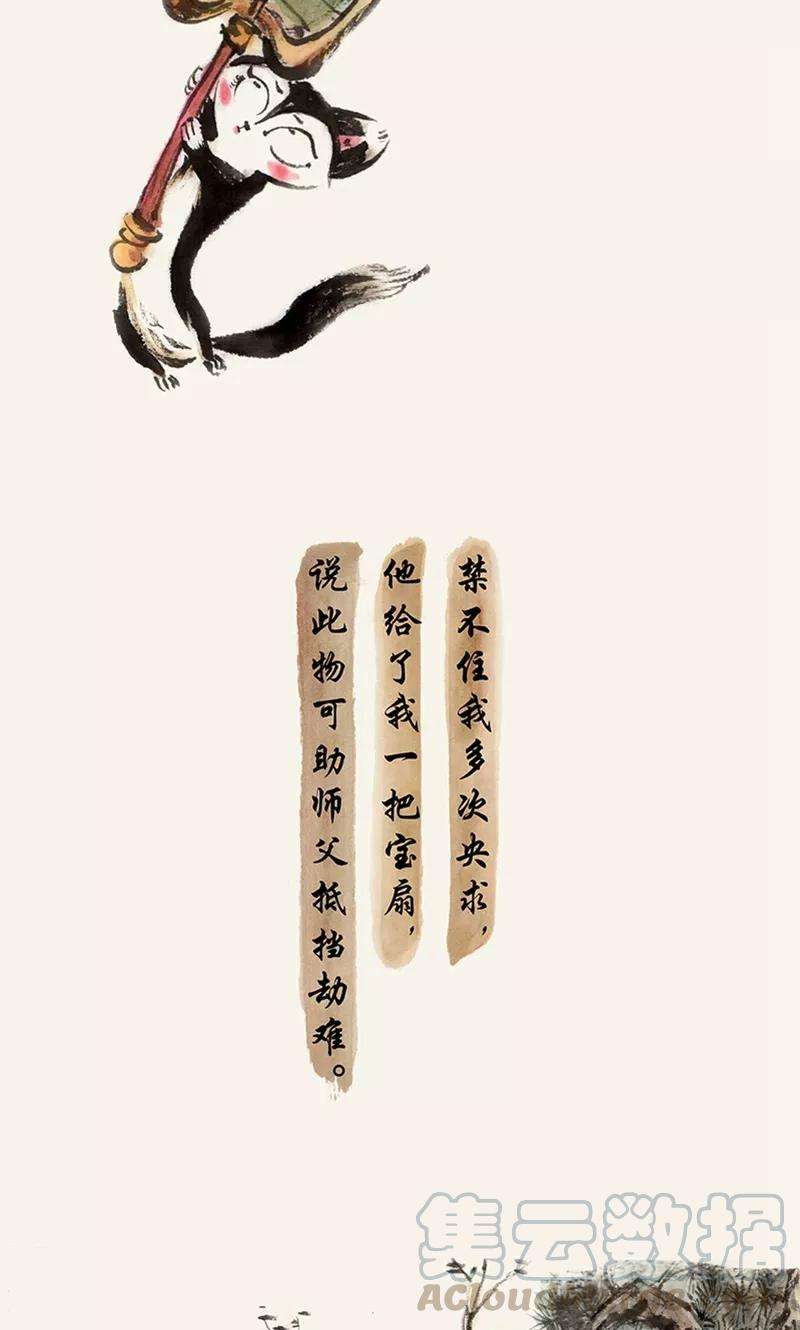 禁不住我多次央求，
他给了我一把宝扇，
说此物可助师父抵挡劫难。
集云数据